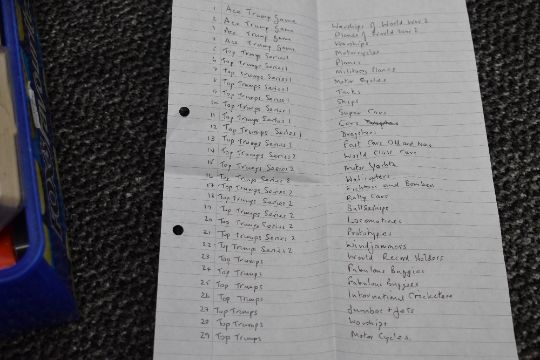 1 Ace Trump Game Warships of World War 2
2 Ace Trump Game Planes of World War 2
3 Ace Trump Game Warships
4 Ace Trump Game Motorcycles
5 Top Trumps Series 1 Planes
6 Top Trumps Series 1 Military Planes
7 Top Trumps Series 1 Motor Cycles
8 Top Trumps Series 1 Tanks
9 Top Trumps Series 1 Ships
10 Top Trumps Series 1 Super Cars
11 Top Trumps Series 1 Cars
12 Top Trumps Series 1 Dragsters
13 Top Trumps Series 1 Fast Cars Old and New
14 Top Trumps Series 2 World Class Cars
15 Top Trumps Series 2 Motor Yachts
16 Top Trumps Series Helicopters
17 Top Trumps Series 2 Fighters and Bombers
18 Top Trumps Series 2 Rally Cars
19 Top Trumps Series 2 Battleships
20 Top Trumps Series 2 Locomotives
21 Top Trumps Series 2 Prototypes
22 Top Trumps Series 2 Windjammers
23 Top Trumps World Record Holders
24 Top Trumps Fabulous Buggies
25 Top Trumps Fabulous Buggies
26 Top Trumps International Cricketers
27 Top Trumps Jumbos + Jets
28 Top Trumps Warships
29 Top Trumps Motor Cycles